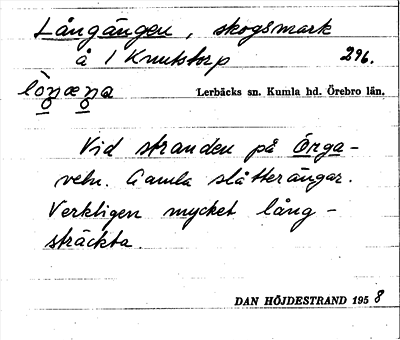 Långängen, skogsmark
å 1 Knutstorp 296.
lòŋæŋa Lerbäcks sn. Kumla hd. Örebro län.
Vid stranden på Örga-
veln. Gamla slåtterängar.
Verkligen mycket lång-
sträckta.
DAN HÖJDESTRAND 1958